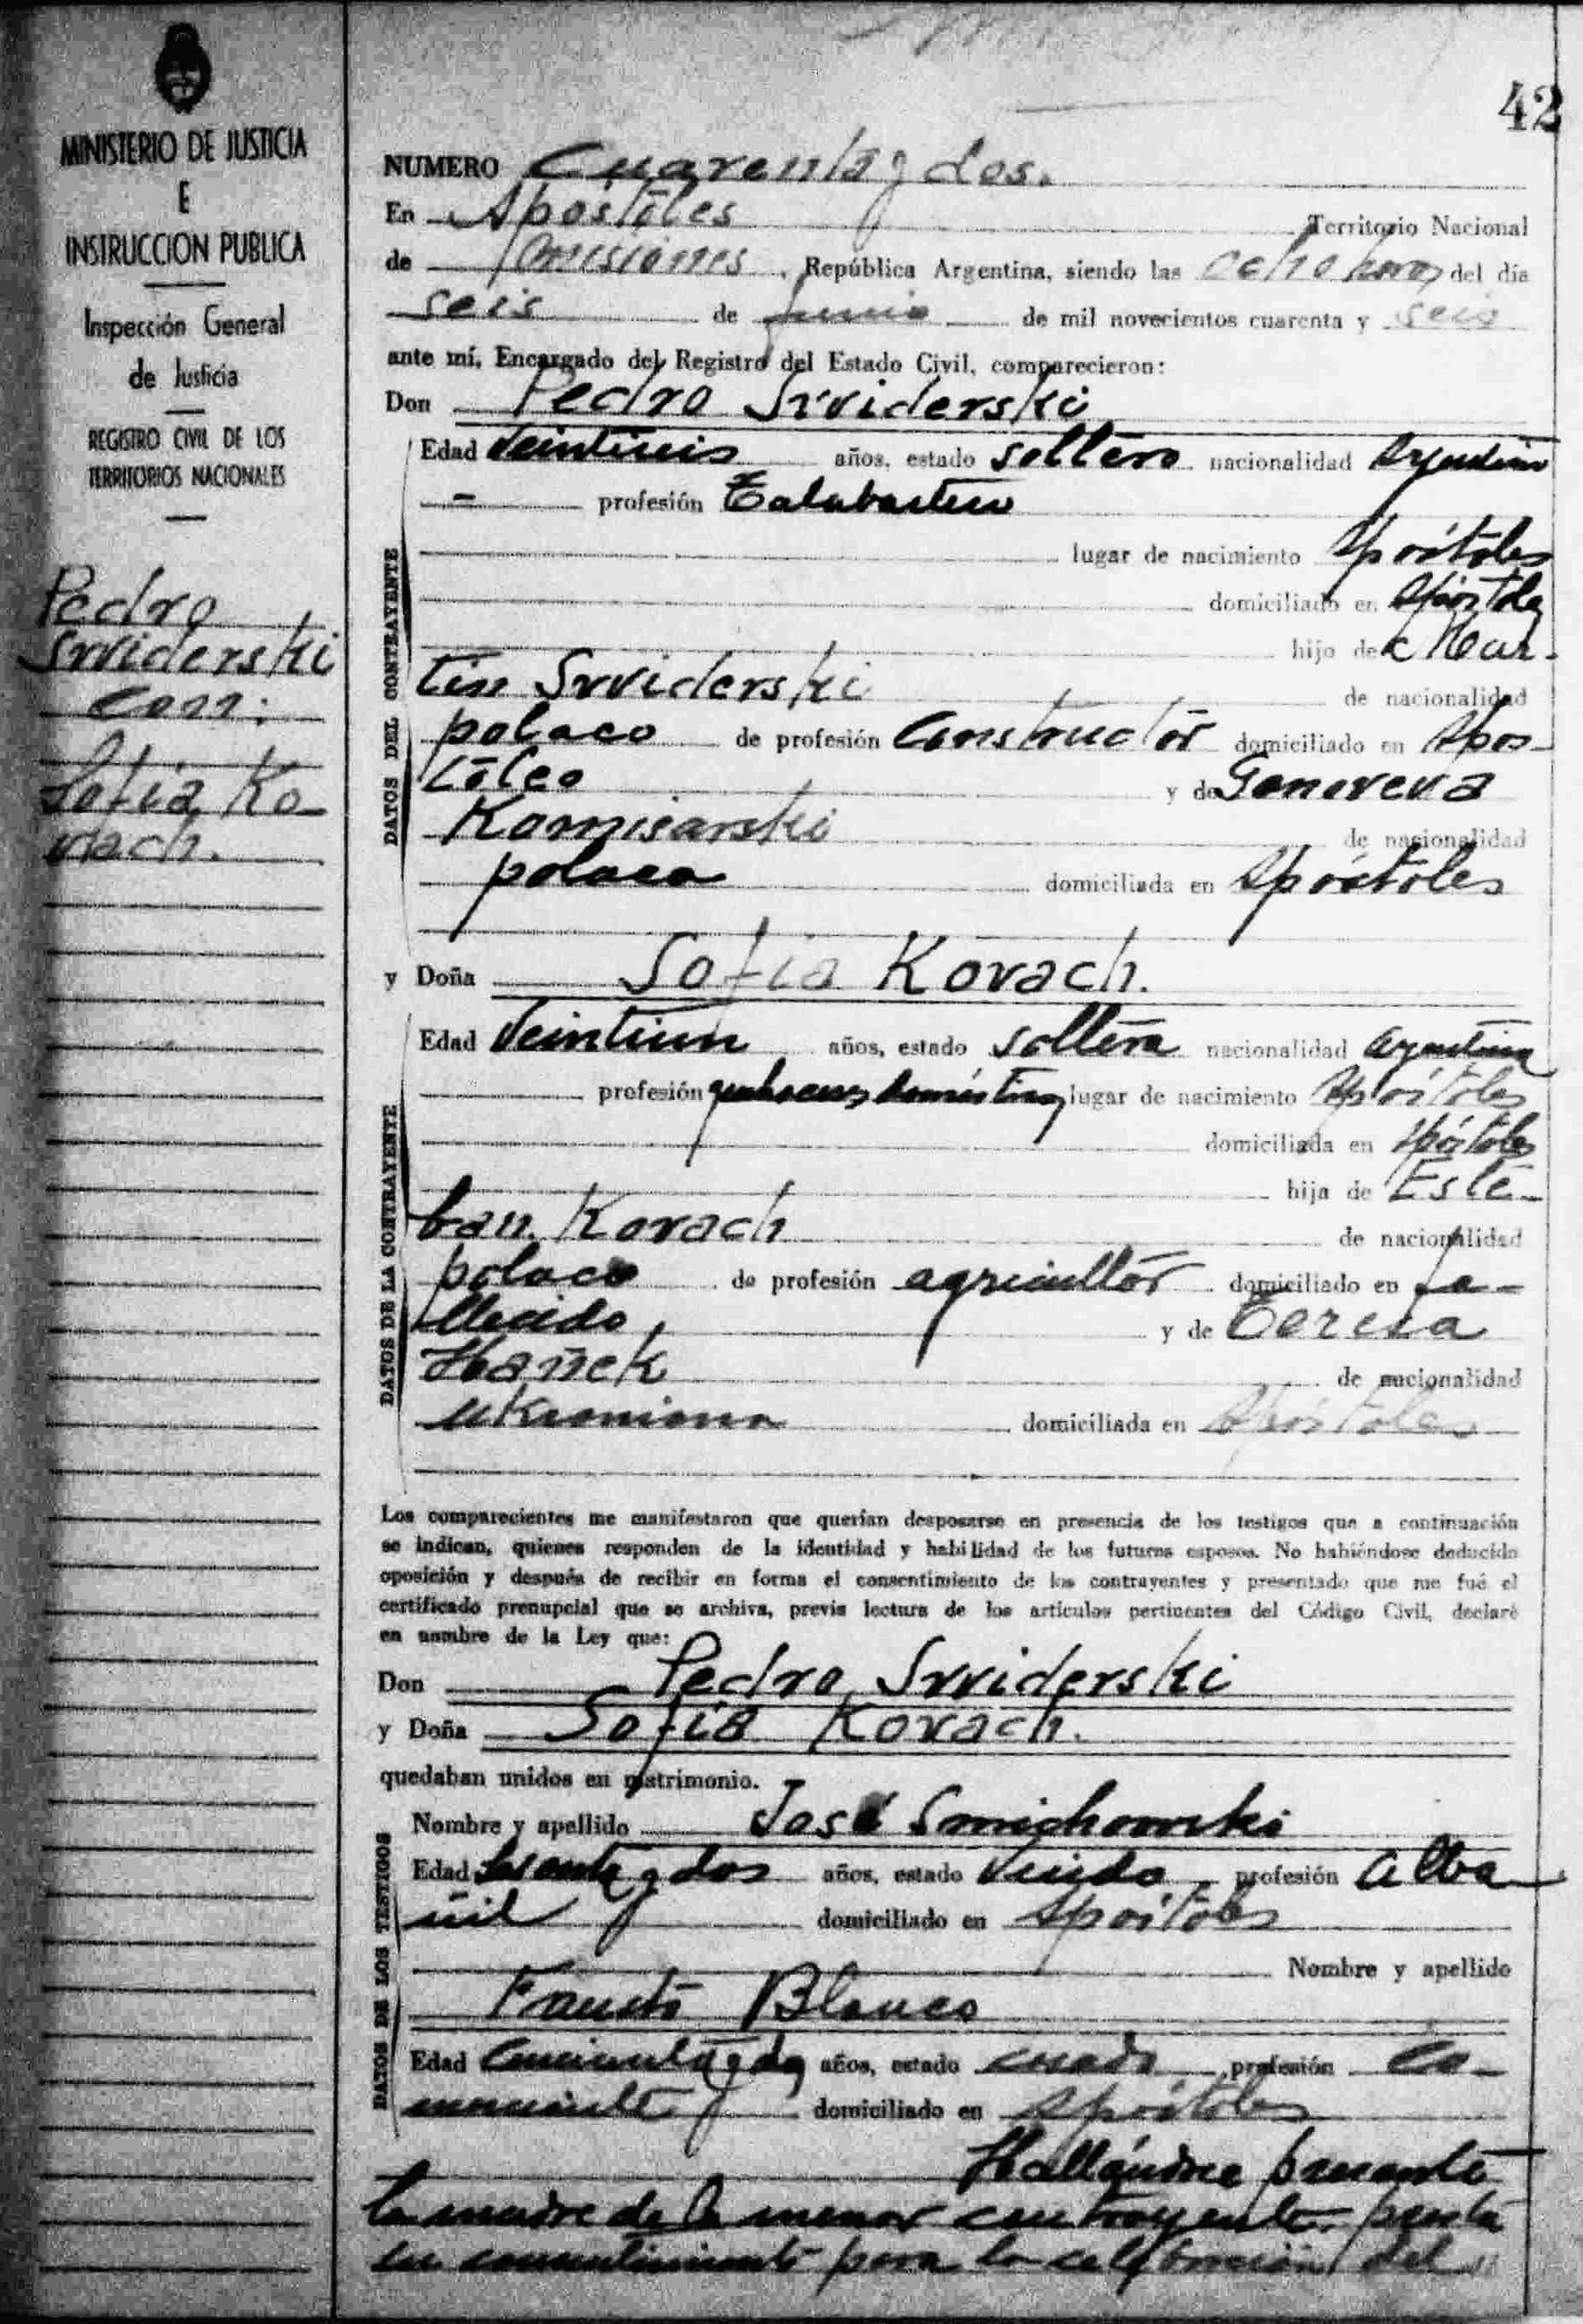 42
MINISTERIO DE JUSTICIA
E
INSTRUCCION PUBLICA
Inspección General
de Justicia
REGISTRO CIVIL DE LOS
TERRITORIOS NACIONALES
Pedro
Swiderski
con:
Sofia Ko-
vach.
NUMERO Cuarenta y dos.
En Apóstoles Territorio Nacional
de Misiones, República Argentina, siendo las ocho horas del día
seis de junio de mil novecientos cuarenta y seis
ante mí, Encargado del Registro del Estado Civil, comparecieron:
Don Pedro Swiderski
DATOS DEL CONTRAYENTE
Edad años, estado soltero nacionalidad Argentino
- profesión Talabartero
lugar de nacimiento Apóstoles
domiciliado en Apóstoles
hijo de Mar-
tin Swiderski de nacionalidad
polaco de profesión Constructor domiciliado en Apos-
toles y de Genoveva
Komisarski de nacionalidad
polaca domiciliada en Apóstoles
y Doña Sofia Kovach.
DATOS DE LA CONTRAYENTE
Edad Veintiun años, estado soltera nacionalidad argentina
profesión quehaceres domésticos lugar de nacimiento Apóstoles
domiciliada en Apóstoles
hija de Este-
ban Kovach de nacionalidad
polaco de profesión agricultor domiciliado en fa-
llecido, y de Teresa
Hañek de nacionalidad
ukraniana domiciliada en Apóstoles
Los comparecientes me manifestaron que querían desposarse en presencia de los testigos que a continuación
se indican, quienes responden de la identidad y habilidad de los futuros esposos. No habiéndose deducido
oposición y después de recibir en forma el consentimiento de los contrayentes y presentado que me fué el
certificado prenupcial que se archiva, previa lectura de los artículos pertinentes del Código Civil, declaré
en nombre de la Ley que:
Don Pedro Swiderski
y Doña Sofia Kovach.
quedaban unidos en matrimonio.
DATOS DE LOS TESTIGOS
Nombre y apellido José Smichowski
Edad y dos años, estado viudo profesión alba
ñil domiciliado en Apóstoles
Nombre y apellido
Fausto Blanco
Edad Cincuenta y dos años, estado casado profesión co-
merciante domiciliado en Apóstoles
Hallándose presente
la madre de la menor contrayente, presta
su consentimiento para la celebración del